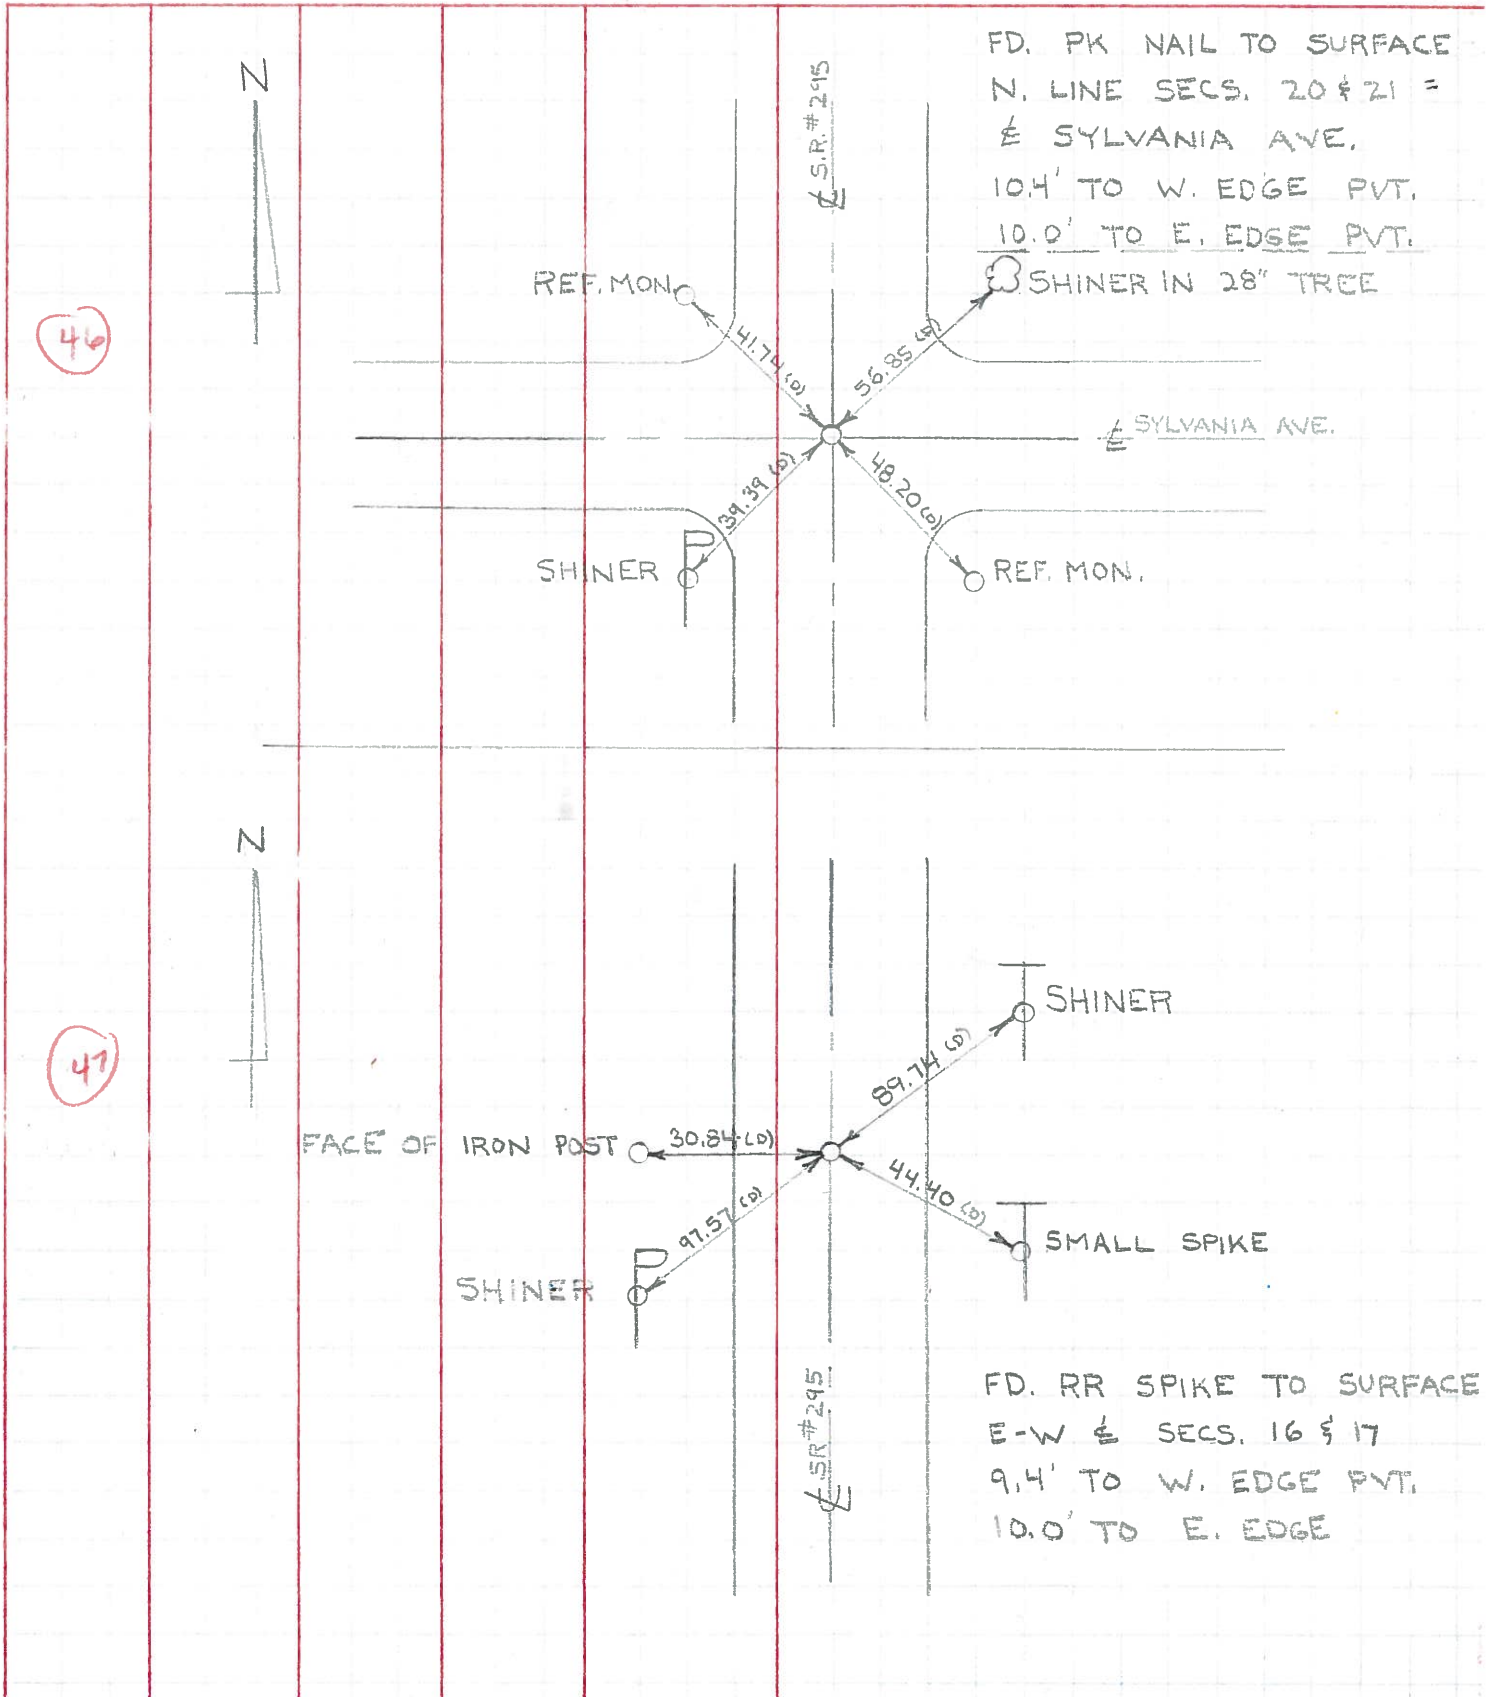 N
46
℄ S.R. #295
FD. PK NAIL TO SURFACE
N. LINE SECS. 20 & 21 =
℄ SYLVANIA AVE.
10.4' TO W. EDGE PVT.
10.0' TO E. EDGE PVT.
REF. MON.
SHINER IN 28" TREE
41.74 (D)
56.85 (D)
℄ SYLVANIA AVE.
39.39 (D)
48.20 (D)
SHINER
REF. MON.
N
47
SHINER
89.74 (D)
FACE OF IRON POST
30.84 (D)
44.40 (D)
97.57 (D)
SMALL SPIKE
SHINER
℄ SR #295
FD. RR SPIKE TO SURFACE
E-W ℄ SECS. 16 & 17
9.4' TO W. EDGE PVT.
10.0' TO E. EDGE